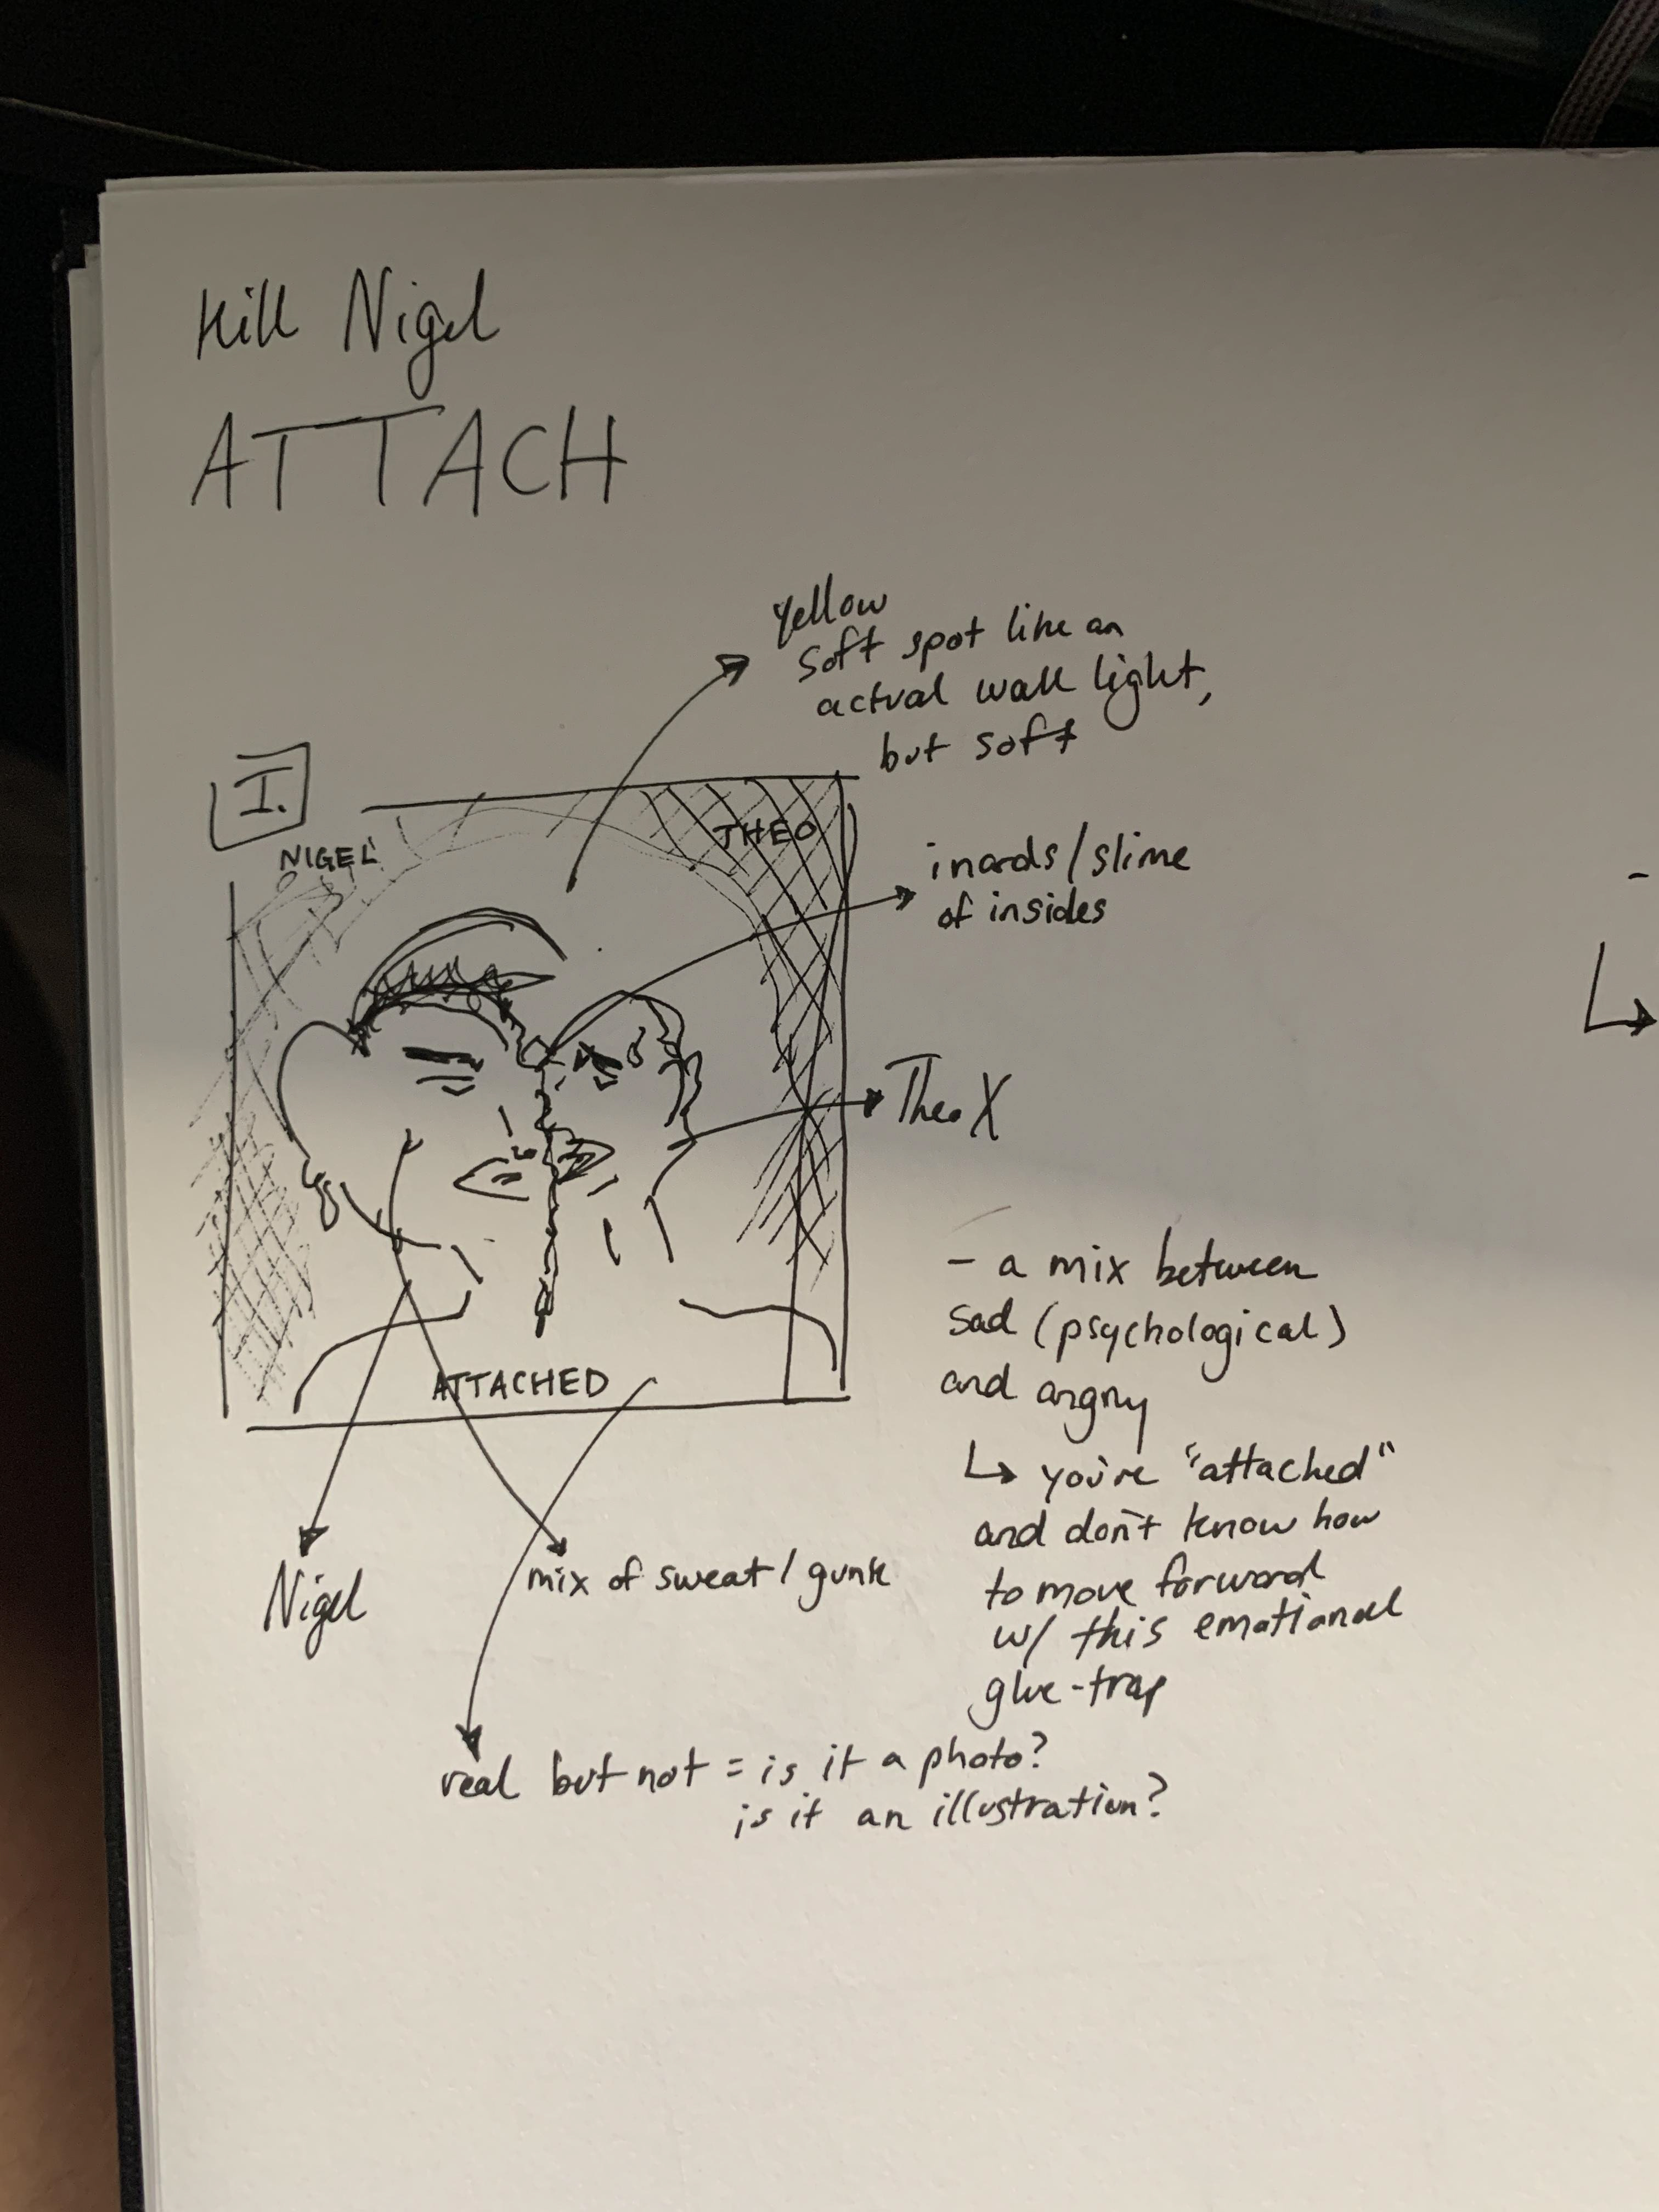 Kill Nigel
ATTACH
yellow
soft spot like an
actual wall light,
but soft
I.
NIGEL
THEO
inards/slime
of insides
Theo X
ATTACHED
- a mix between
sad (psychological)
and angry
↳ you're "attached"
and don't know how
to move forward
w/ this emotional
glue-trap
Nigel
mix of sweat/gunk
real but not = is it a photo?
is it an illustration?